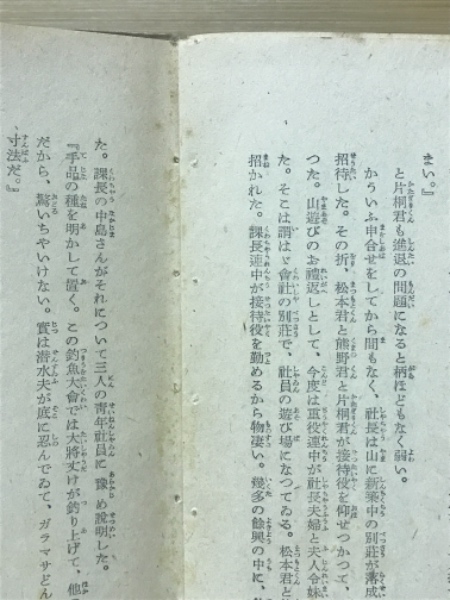 まい。』
と片桐君も進退の問題になると柄ほどもなく弱い。
かういふ申合せをしてから間もなく、社長は山に新築中の別莊が落成
招待した。その折、松本君と熊野君と片桐君が接待役を仰せつかつて、
つた。山遊びのお禮返しとして、今度は重役連中が社長夫婦と夫人令妹
た。そこは謂はゞ會社の別莊で、社員の遊び場になつてゐる。松本君と
招かれた。課長連中が接待役を勤めるから物凄い。幾多の餘興の中に、
た。課長の中島さんがそれについて三人の青年社員に豫め説明した。
『手品の種を明かして置く。この釣魚大會では大將丈けが釣り上げて、他
だから、驚いちやいけない。實は潜水夫が底に忍んでゐて、ガラマサどん
寸法だ。』